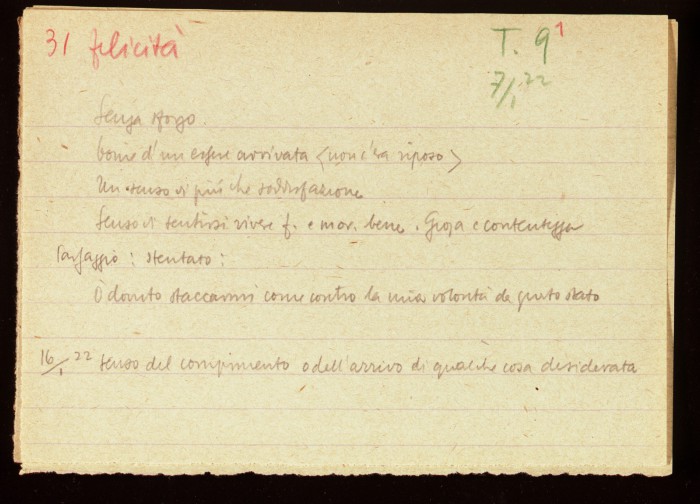 31 felicità
T. 9¹
7/1 22
Senza sforzo.
Come d'un essere arrivata (non c'era riposo)
Un senso di più che soddisfazione
Senso di sentirsi vivere f. e mor. bene. Gioja e contentezza
Passaggio: stentato:
O dovuto staccarmi come contro la mia volontà da questo stato
16/1 22 senso del compimento o dell'arrivo di qualche cosa desiderata